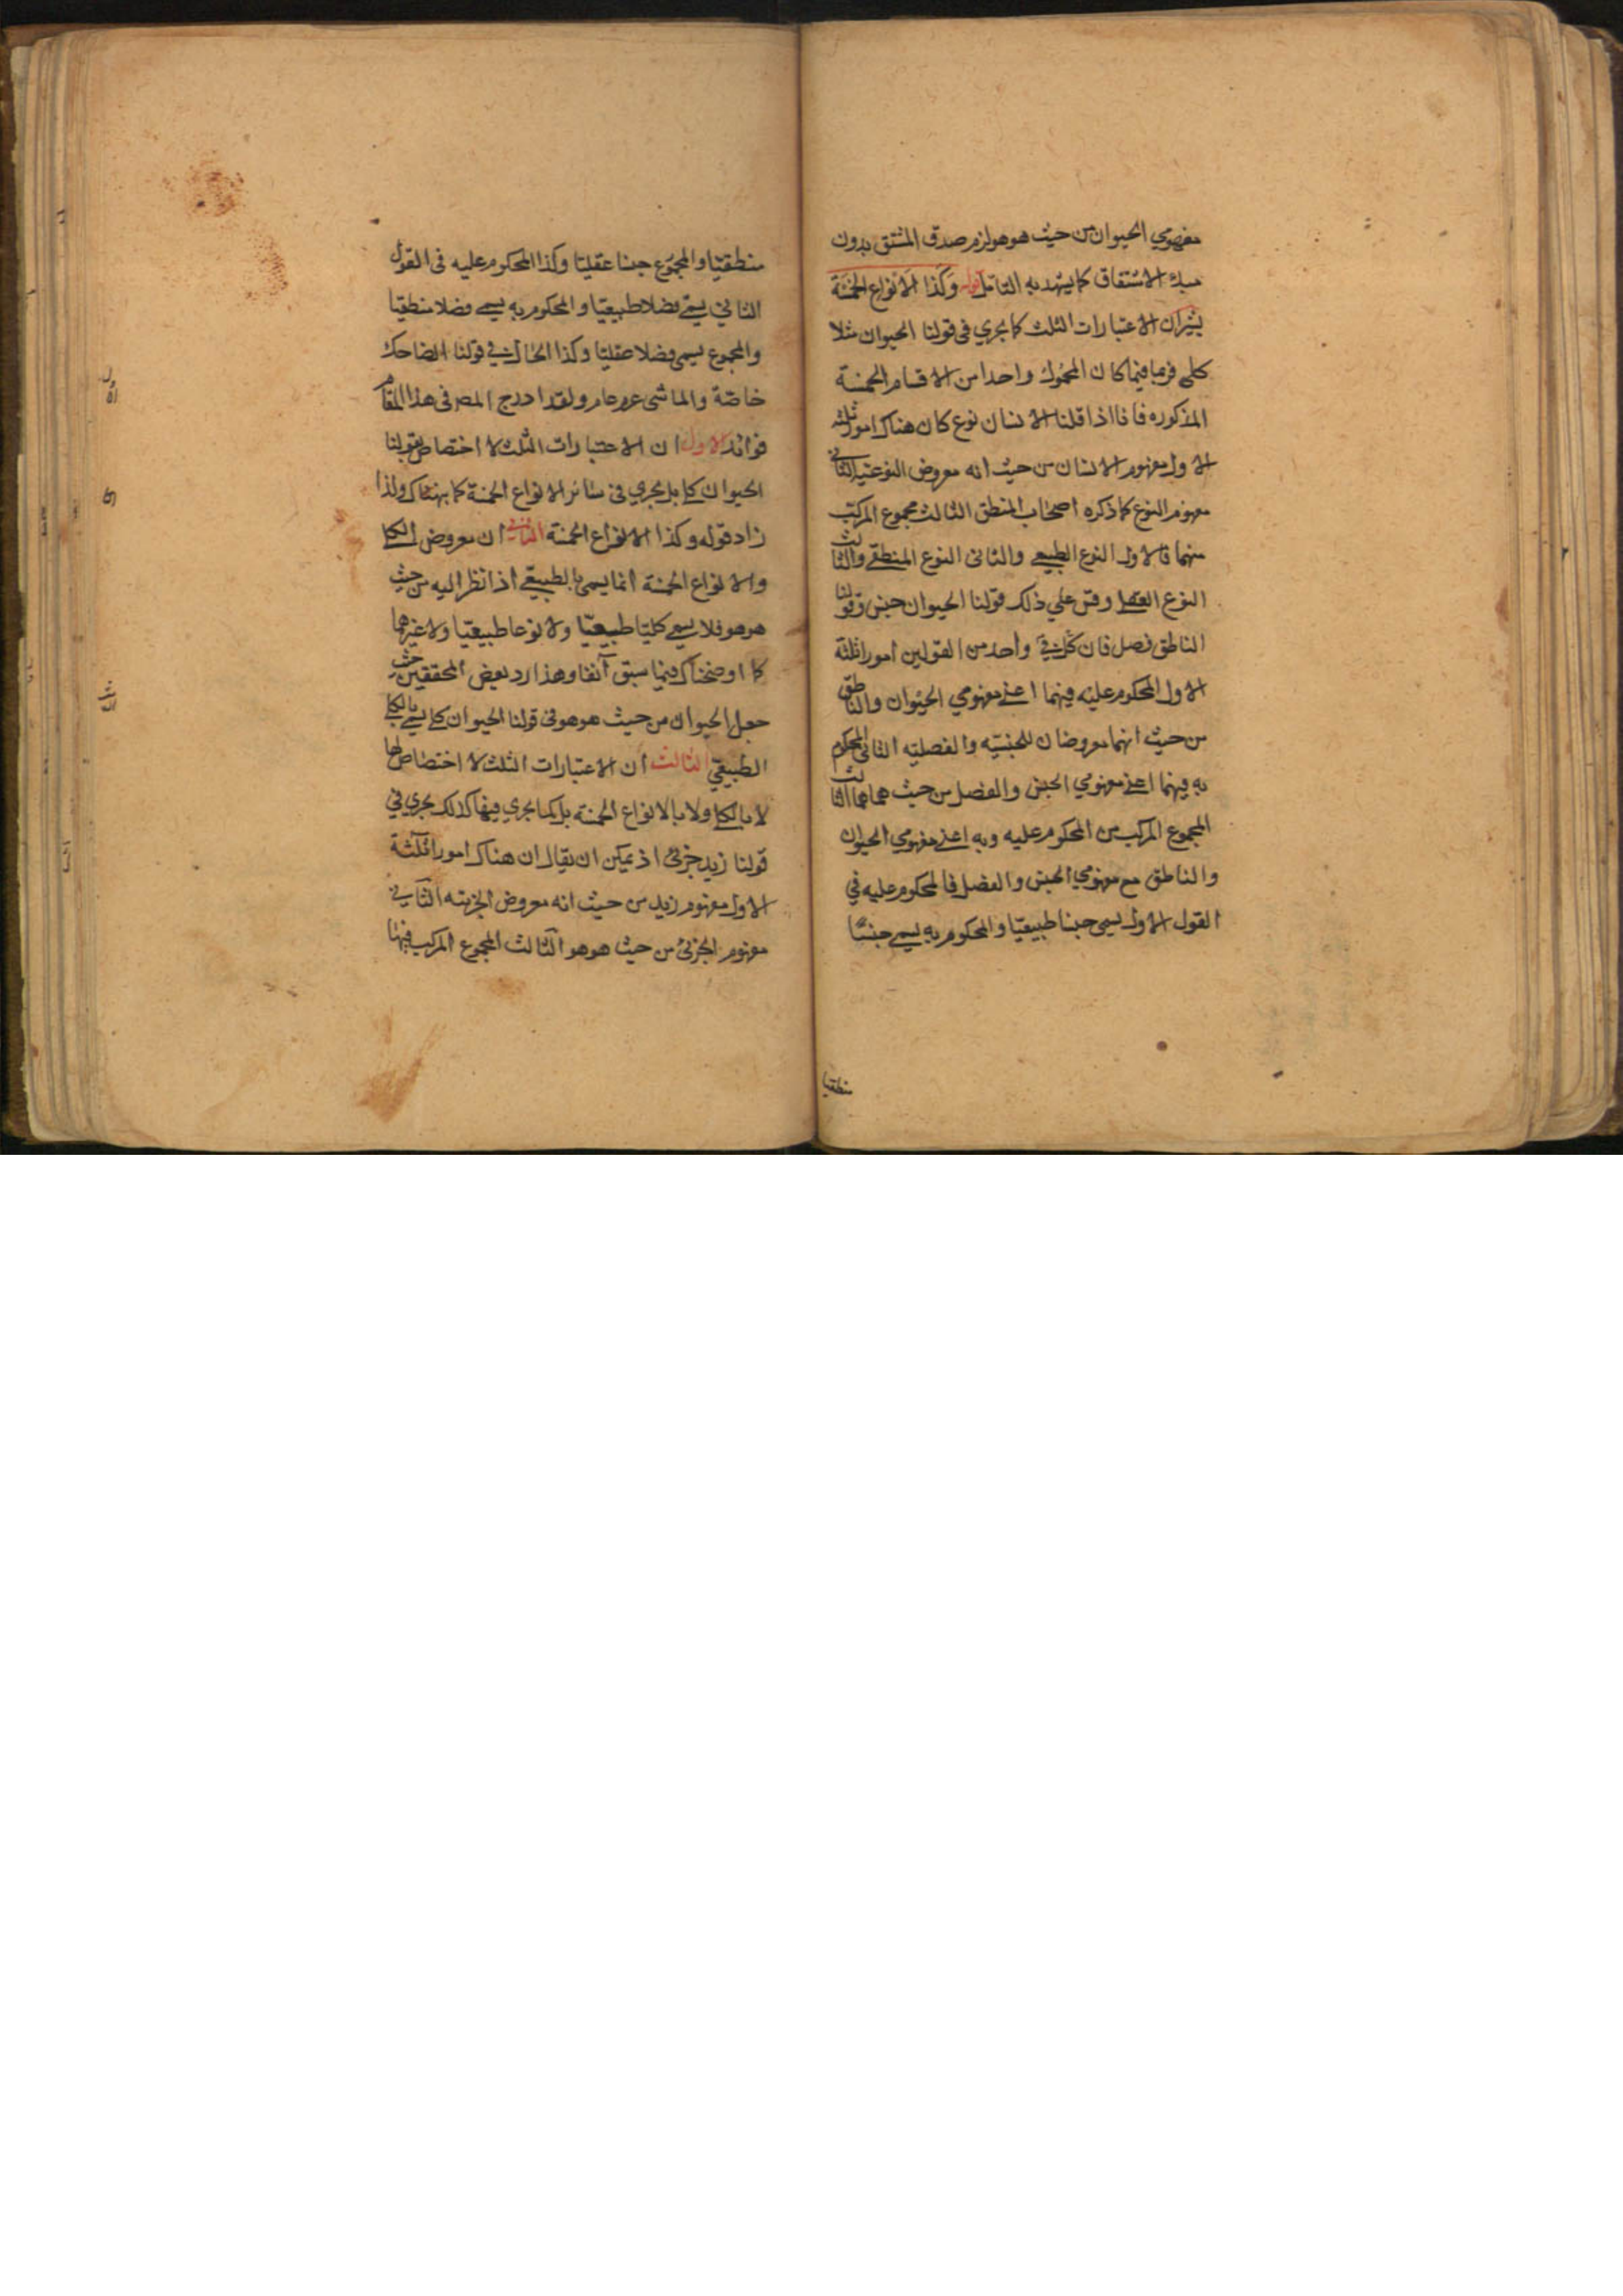 مفهومي الحيوان من حيث هو هو لزم صدق المشتق بدون
مبدء الاشتقاق كما يشهد به التامل قوله وكذا الانواع الخمسة
يشير ان الاعتبارات الثلث كما يجري في قولنا الحيوان مثلا
كلي فربما فيما كان المحمول واحدا من الاقسام الخمسة
المذكوره فانا اذا قلنا الانسان نوع كان هناك امور ثلثه
الاول مفهوم الانسان من حيث انه معروض النوعيه الثاني
مفهوم النوع كما ذكره اصحاب المنطق الثالث مجموع المركب
منهما فالاول النوع الطبيعي والثاني النوع المنطقي والثالث
النوع العقلي وقس علي ذلك قولنا الحيوان جنس وقولنا
الناطق فصل فان كل في واحد من القولين امورا ثلثة
الاول المحكوم عليه فيهما اعني مفهومي الحيوان والناطق
من حيث انهما معروضان للجنسيه والفصليه الثاني المحكوم
به فيهما اعني مفهومي الجنس والفصل من حيث هما هما الثالث
المجموع المركب من المحكوم عليه وبه اعني مفهومي الحيوان
والناطق مع مفهومي الجنس والفصل فالمحكوم عليه في
القول الاول يسمى جنسا طبيعيا والمحكوم به يسمي جنسا
منطقيا
منطقيا والمجموع جنسا عقليا وكذا المحكوم عليه في القول
الثاني يسمي فصلا طبيعيا والمحكوم به يسمي فصلا منطقيا
والمجموع يسمى فصلا عقليا وكذا الحال في قولنا الضاحك
خاصة والماشي عرض عام ولقد ادرج المص في هذا المقام
فوائد الاول ان الاعتبارات الثلث لا اختصاص بقولنا
الحيوان كلي بل يجري في سائر الانواع الخمسة كما بهناك ولذا
زاد قوله وكذا الانواع الخمسة الثاني ان معروض الكلي
والانواع الخمسة انما يسمى بالطبيعي اذا نظر اليه من حيث
هو هو فلا يسمي كليا طبيعيا ولا نوعا طبيعيا ولا غيرهما
كما اوضحناك فيما سبق آنفا وهذا رد بعض المحققين حيث
جعل الحيوان من حيث هو هو في قولنا الحيوان كلي يسمي بالكلي
الطبيعي الثالث ان الاعتبارات الثلث لا اختصاص لها
لا بالكلي ولا بالانواع الخمسة بل كما يجري فيها كذلك يجري في
قولنا زيد جزئي اذ يمكن ان يقال ان هناك امورا ثلثة
الاول مفهوم زيد من حيث انه معروض الجزئيه الثاني
مفهوم الجزئي من حيث هو هو الثالث المجموع المركب فيهما